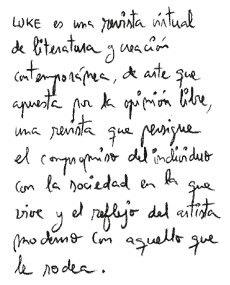 LUKE es una revista virtual
de literatura y creación
contemporánea, de arte que
apuesta por la opinión libre,
una revista que persigue
el compromiso del individuo
con la sociedad en la que
vive y el reflejo del artista
moderno con aquello que
le rodea.